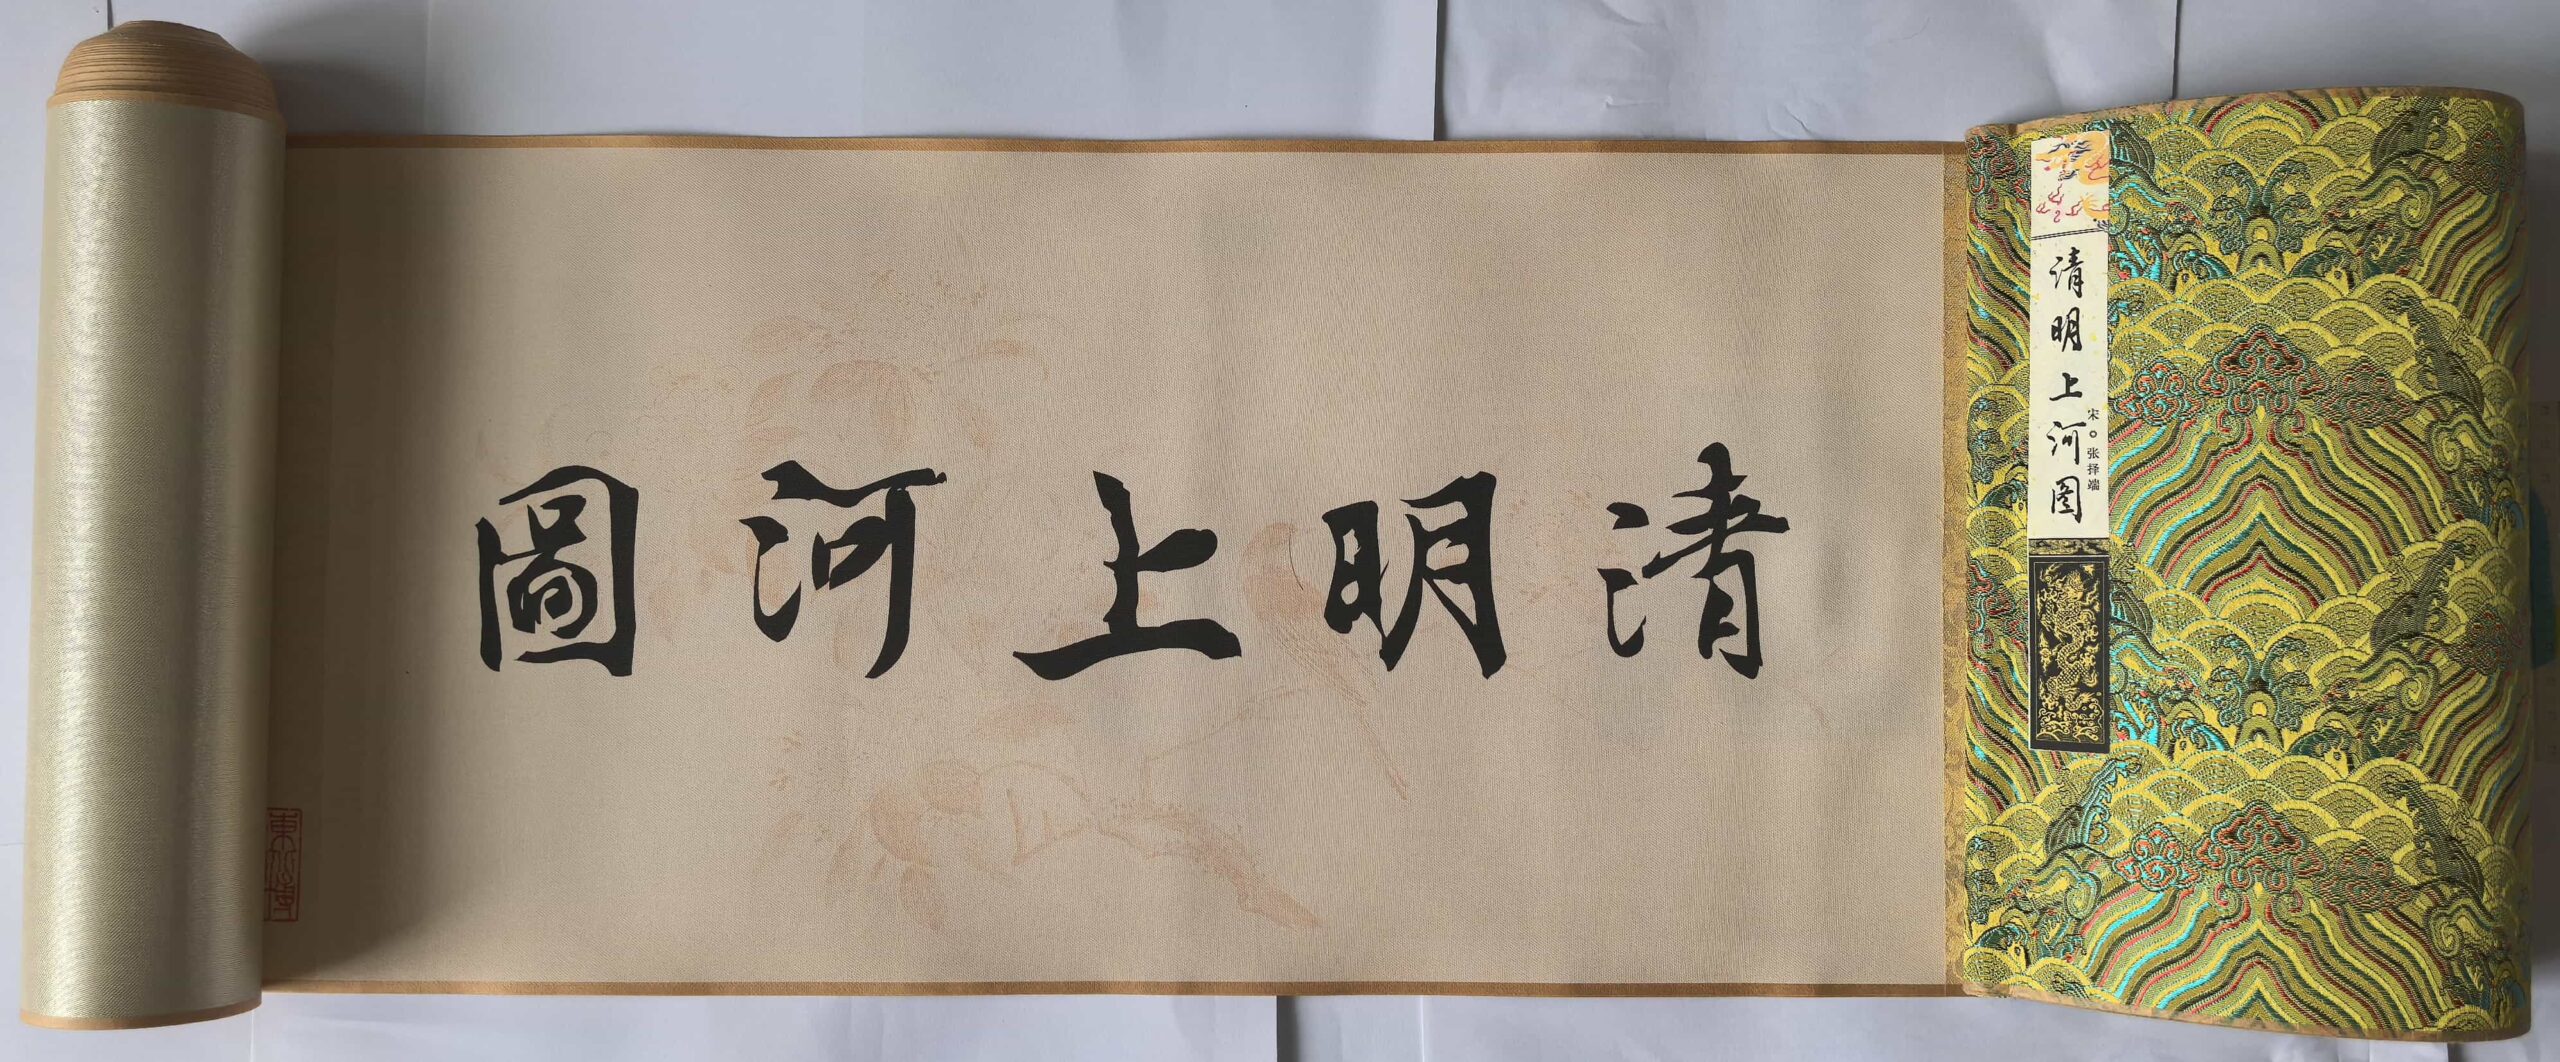 清明上河图
宋。张择端
清明上河圖